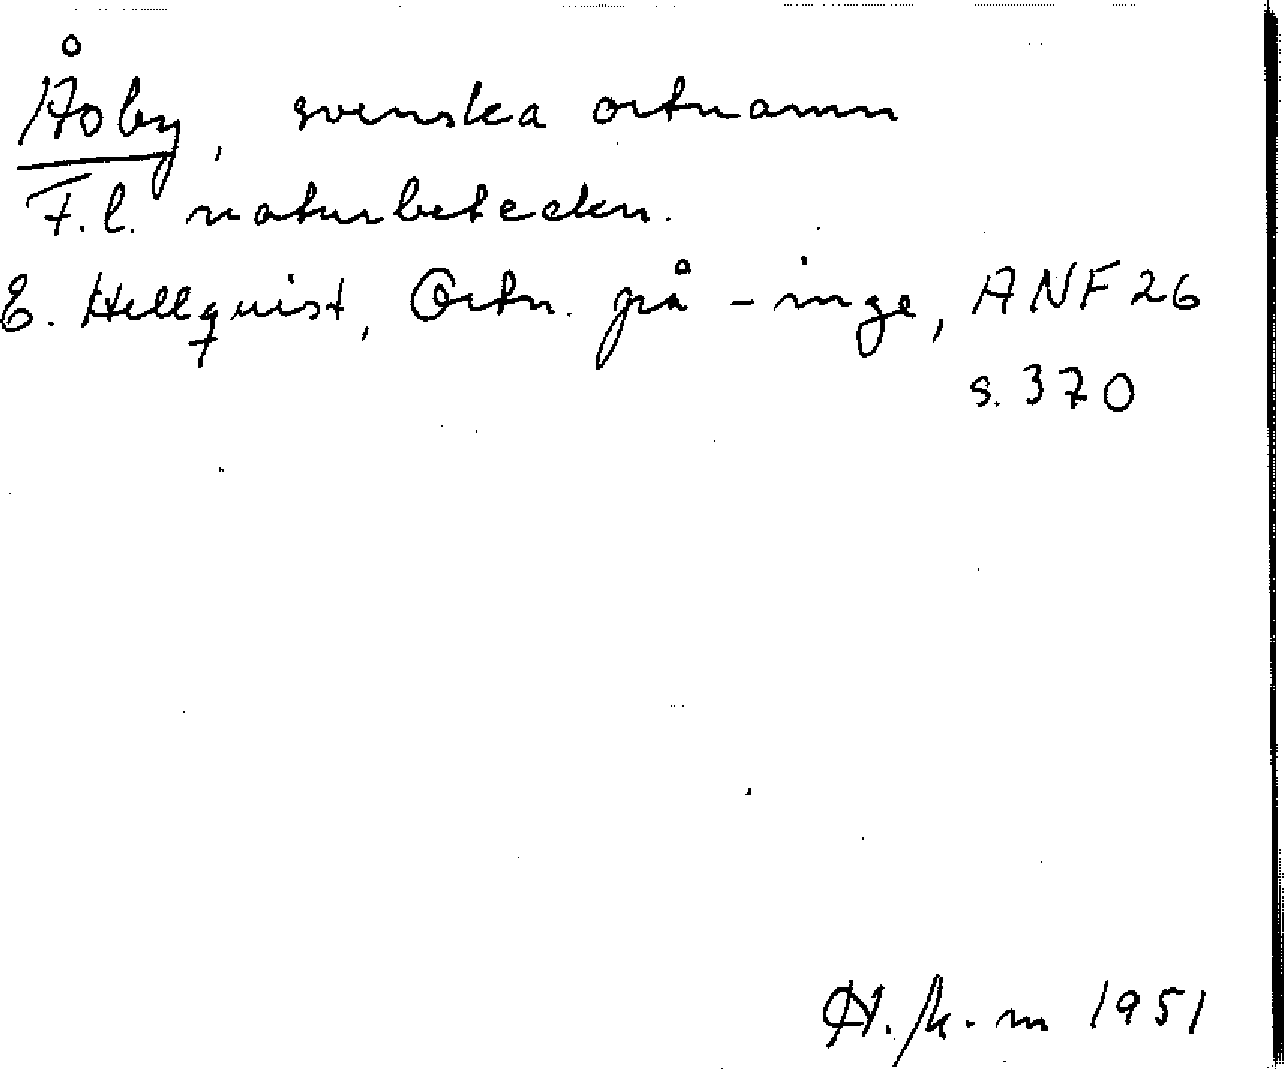 Åsby, svenska ortnamn
F.l. naturbeteckn.
E. Hellquist, Ortn. på -inge, ANF 26
s. 370
1951